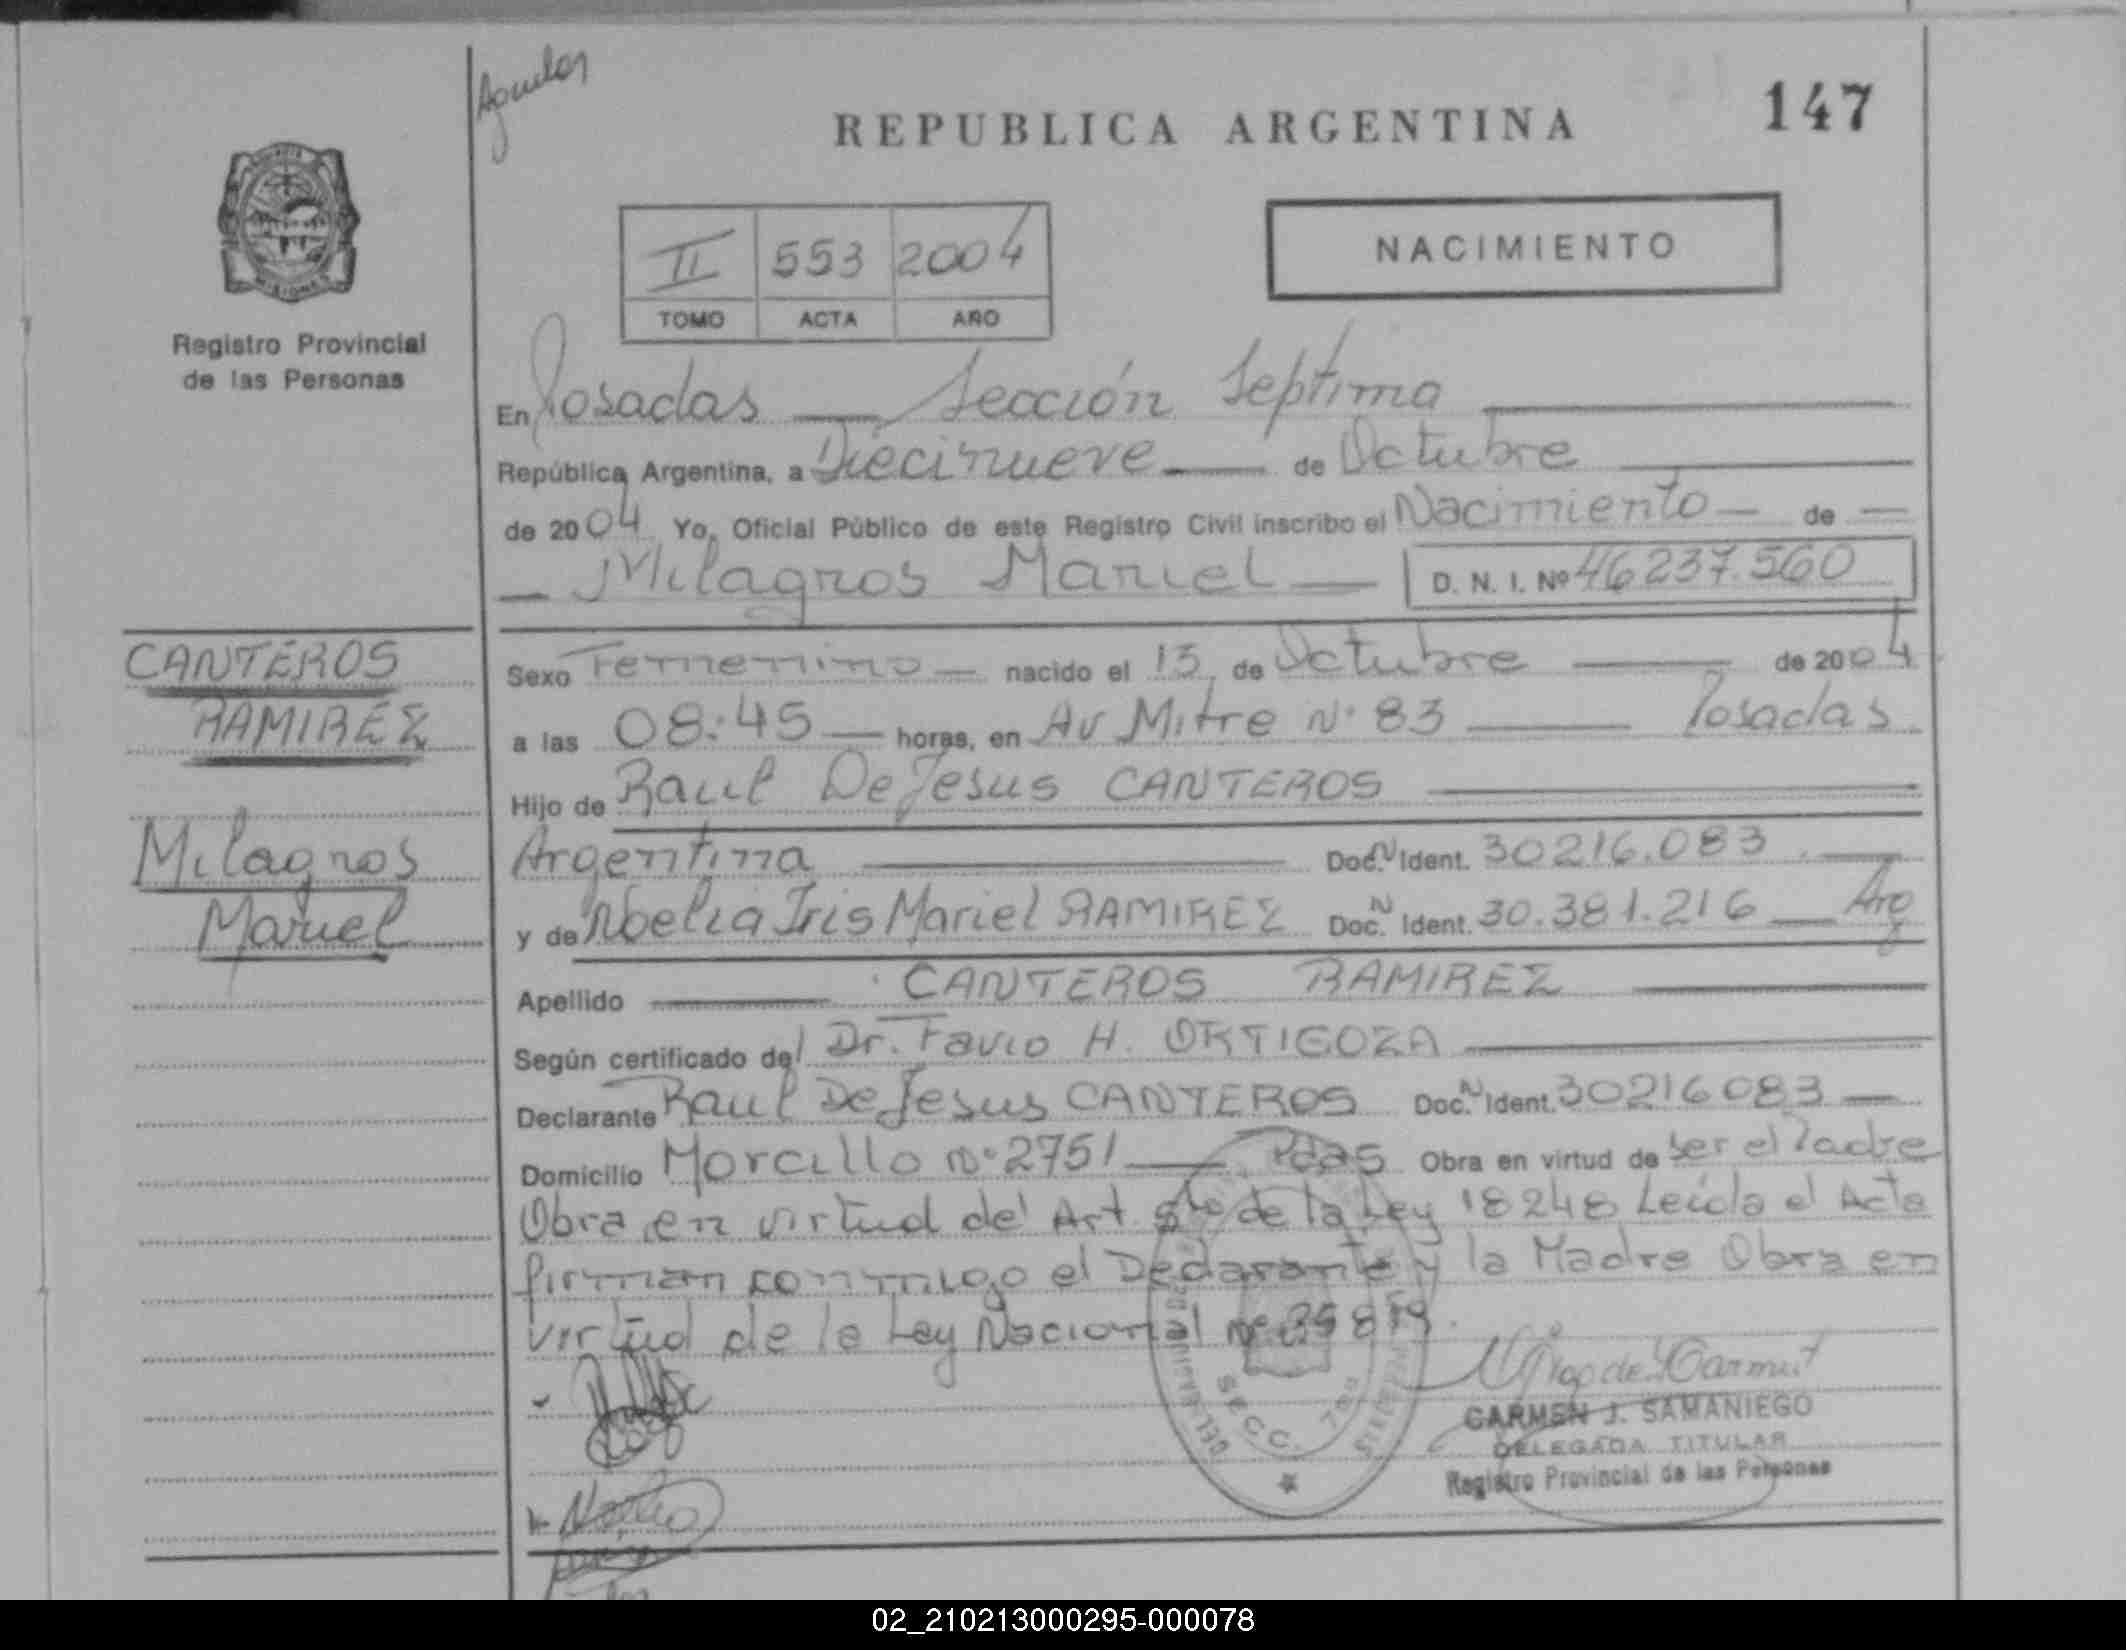 Aguilar
REPUBLICA ARGENTINA
147
II 553 2004
TOMO ACTA AÑO
NACIMIENTO
MISIONES
Registro Provincial
de las Personas
En Posadas — Sección Septima
República Argentina, a Diecinueve — de Octubre
de 2004 Yo, Oficial Público de este Registro Civil inscribo el Nacimiento — de —
— Milagros Mariel — D. N. I. Nº 46237.560
CANTEROS
RAMIREZ
Milagros
Mariel
Sexo Femenino — nacido el 15 de Octubre — de 2004
a las 08:45 — horas, en Av Mitre Nº 83 — Posadas
Hijo de Raul De Jesus CANTEROS —
Argentina — Doc. N Ident. 30216.083 —
y de Noelia Iris Mariel RAMIREZ Doc. N Ident. 30.381.216 — Arg
Apellido — CANTEROS RAMIREZ —
Según certificado del Dr. Favio H. ORTIGOZA —
Declarante Raul De Jesus CANTEROS Doc. N Ident. 30216083 —
Domicilio Morcillo Nº 2751 — Pdas Obra en virtud de ser el Padre
Obra en virtud del Art 5to de la Ley 18248 Leída el Acta
firman conmigo el Declarante y la Madre Obra en
virtud de la Ley Nacional Nº
SECC. 7ma
CARMEN J. SAMANIEGO
DELEGADA TITULAR
Registro Provincial de las Personas
02_210213000295-000078